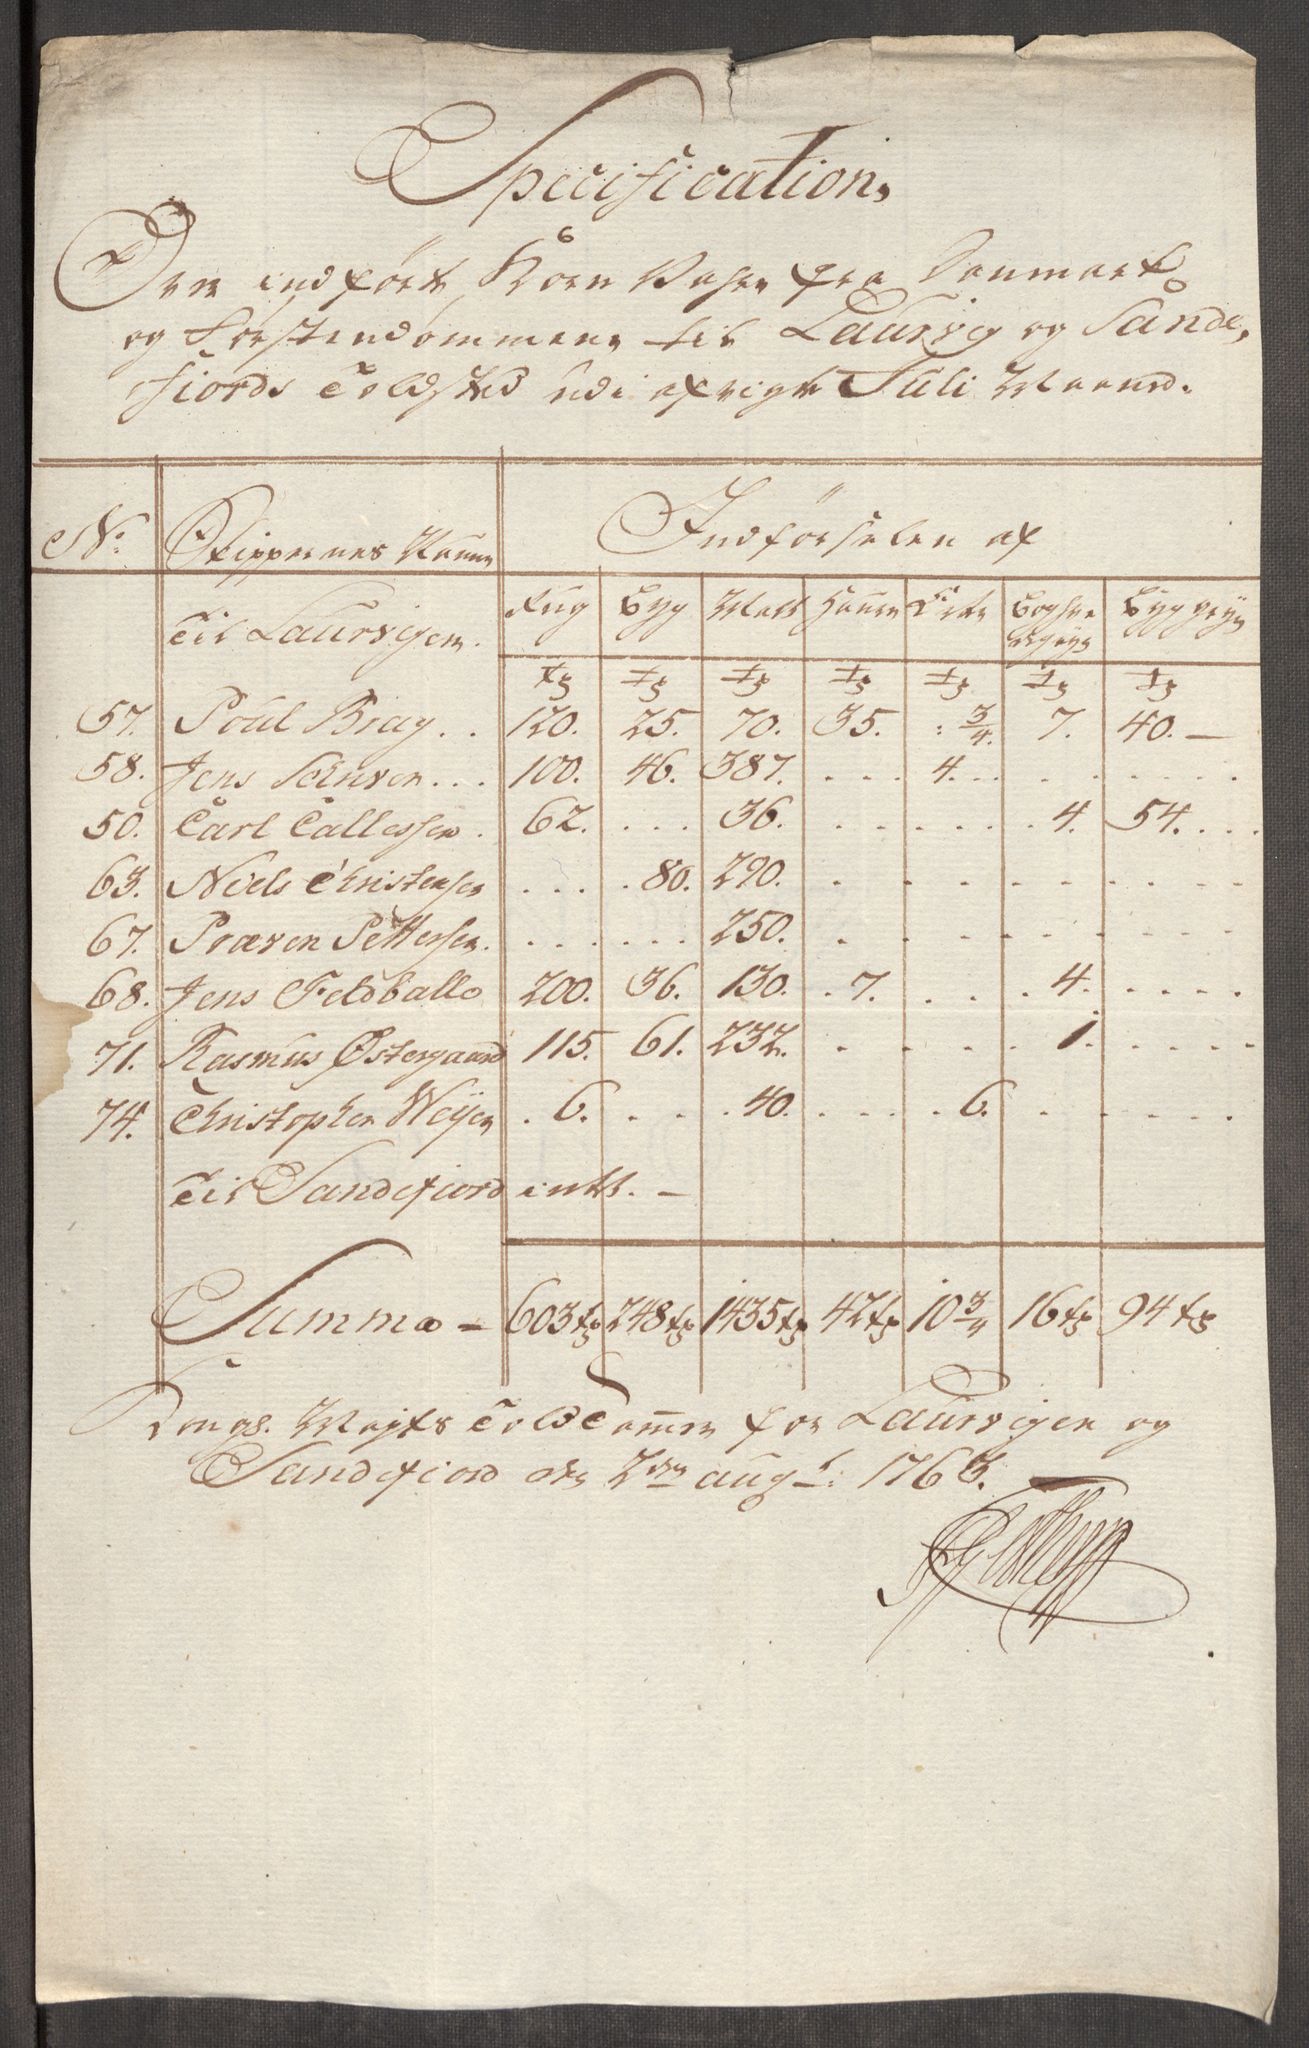 Specification,
Over indført Korn Vahre fra Danmark
og Førstendommene til Laurvig og Sande,
fiords Toldsted udi afvigte Julii Maaned.
No. Skippernes Nafne Indførselen af
Til Laurvigen. Rug Byg Malt Hafre Erter Boghve gryn Byg gryn
tr tr tr tr tr tr tr
57. Poul Bray . . 120. 25. 70. 35. : 3/4. 7. 40. —
58. Jens Sensen . . . 100. 46. 387. . . . 4. . . . . . . . .
50. Carl Callessen . 62. . . . 36. . . . . . . 4. 54. . . .
63. Niels Christensen . . . . 80. 290. . . . . . . . . .
67. Præsen Pettersen . . . . . . . 250. . . . . . . . . .
68. Jens Feldballe 200. 36. 130. . 7. . . . . 4. . . . .
71. Rasmus Østergaard 115. 61. 232. . . . . . 1. . . . . .
74. Christopher Weyer . 6. . . . 40. . . . . 6. . . . . .
Til Sandefiord intet. —
Summa — 603 tr 248 tr 1435 tr 42 tr 10 3/4 16 tr 94 tr
Kongs. Mayts Told Cammer for Laurvigen og
Sandefiord den 2den augt: 1763.